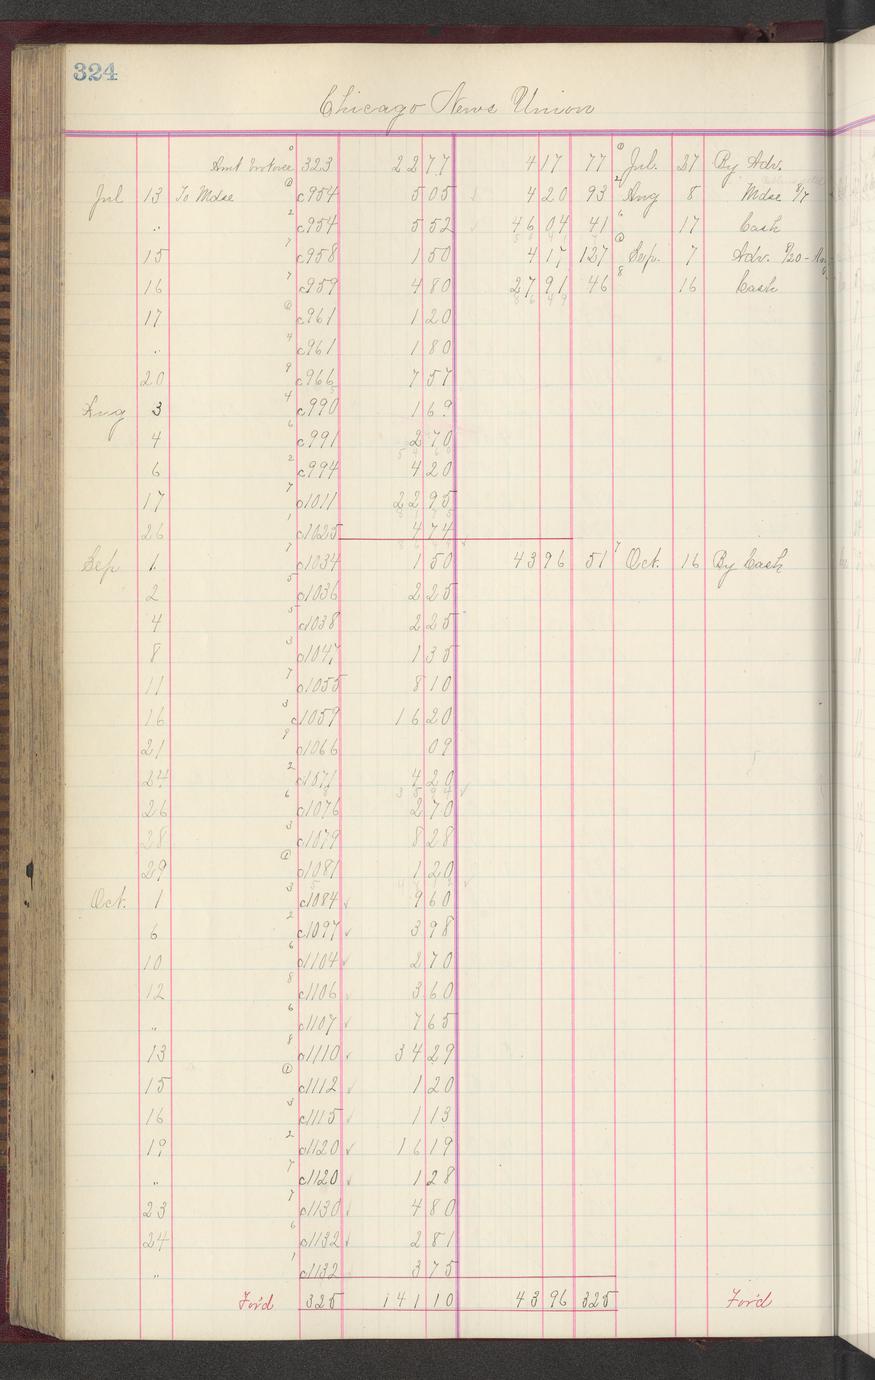 324
Chicago News Union
323 22 77 4 17 77 Jul. 27 By Adv.
Jul 13 To Mdse c954 5 05 4 20 93 Aug 8 Mdse 8/7
" c954 5 52 46 04 41 17 Cash
15 c958 1 50 4 17 127 Sep. 7 Adv. 8/20 -
16 c959 4 80 27 91 46 16 Cash
17 c961 1 20
" c961 1 80
20 c966 7 57
Aug 3 c990 1 69
4 c991 2 70
6 c994 4 20
17 c1011 22 95
26 c1025 4 74
Sep 1 c1034 1 50 43 96 51 Oct. 16 By Cash
2 c1036 2 25
4 c1038 2 25
8 c1047 1 35
11 c1055 8 10
16 c1059 16 20
21 c1066 09
24 c1071 4 20
26 c1076 2 70
28 c1079 8 28
29 c1081 1 20
Oct. 1 c1084 9 60
6 c1097 3 98
10 c1104 2 70
12 c1106 3 60
" c1107 7 65
13 c1110 34 29
15 c1112 1 20
16 c1115 1 13
19 c1120 16 19
" c1120 1 28
23 c1130 4 80
24 c1132 2 81
" c1132 3 75
For'd 325 141 10 43 96 325 For'd